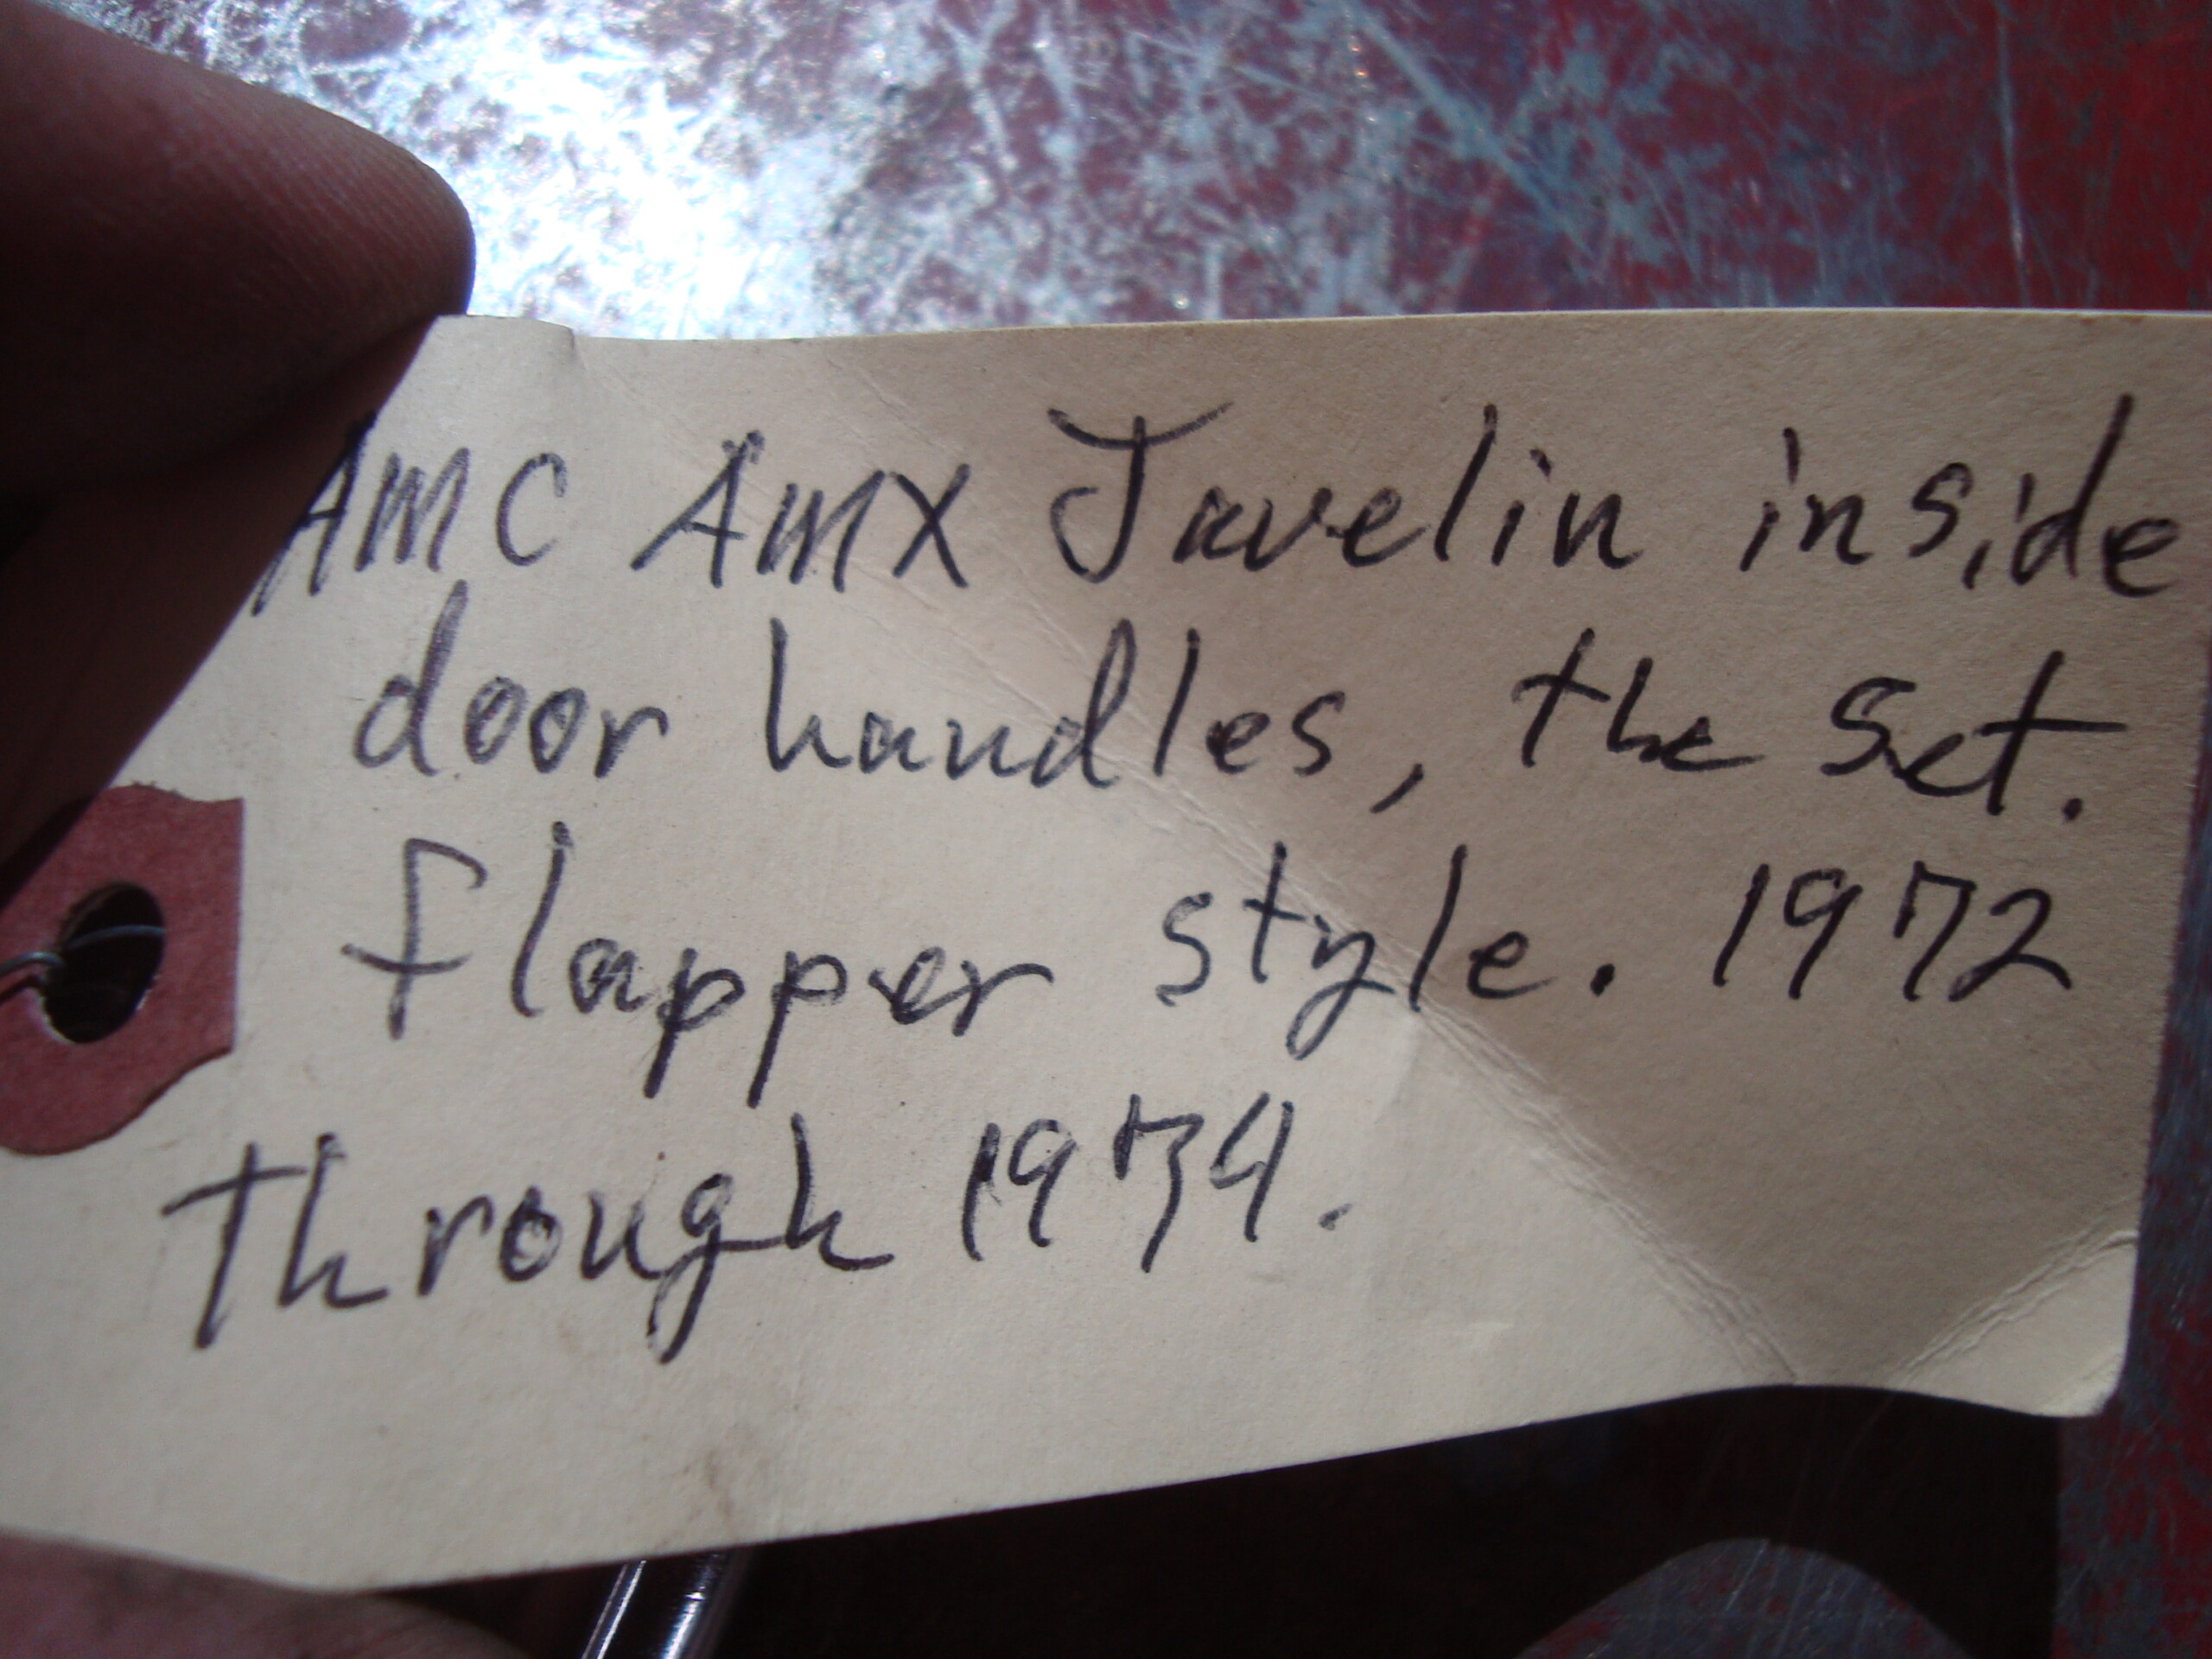 AMC AMX Javelin inside
door handles, the set.
flapper style. 1972
through 1974.